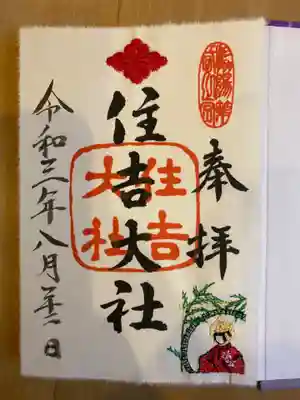 奉拝
住吉大社
住吉
大社
令和三年八月 日